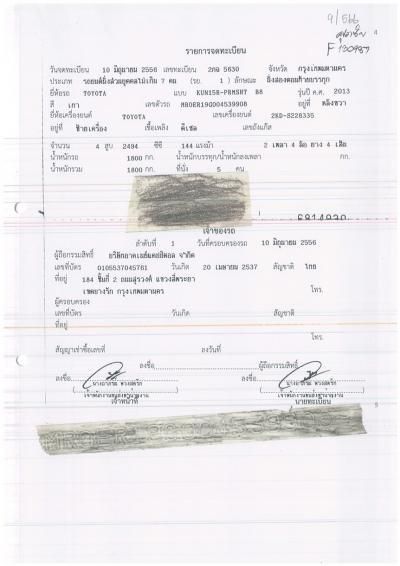 9/566
4
F 130987
รายการจดทะเบียน
วันจดทะเบียน 10 มิถุนายน 2556 เลขทะเบียน 2กจ 5630 จังหวัด กรุงเทพมหานคร
ประเภท รถยนต์นั่งส่วนบุคคลไม่เกิน 7 คน (รย. 1) ลักษณะ นั่งสองตอนท้ายบรรทุก
ยี่ห้อรถ TOYOTA แบบ KUN15R-PRMSHT B8 รุ่นปี ค.ศ. 2013
สี เทา เลขตัวรถ MR0ER19G004539908 อยู่ที่
ยี่ห้อเครื่องยนต์ TOYOTA เลขเครื่องยนต์ 2KD-S228335
อยู่ที่ ซ้ายเครื่อง เชื้อเพลิง ดีเซล เลขถังแก๊ส
จำนวน 4 สูบ 2494 ซีซี 144 แรงม้า 2 เพลา 4 ล้อ ยาง 4 เส้น
น้ำหนักรถ 1800 กก. น้ำหนักบรรทุก/น้ำหนักลงเพลา กก.
น้ำหนักรวม 1800 กก. ที่นั่ง 5 คน
เจ้าของรถ
ลำดับที่ 1 วันที่ครอบครองรถ 10 มิถุนายน 2556
ผู้ถือกรรมสิทธิ์ จำกัด
เลขที่บัตร 0105537045761 วันเกิด 20 เมษายน 2537 สัญชาติ ไทย
ที่อยู่ 184 ชั้นที่ 2 ถนนสุรวงศ์ แขวงสี่พระยา
เขตบางรัก กรุงเทพมหานคร โทร.
ผู้ครอบครอง
เลขที่บัตร วันเกิด สัญชาติ
ที่อยู่
โทร.
สัญญาเช่าซื้อเลขที่ ลงวันที่
ลงชื่อ ผู้ถือกรรมสิทธิ์
ลงชื่อ ลงชื่อ
เจ้าหน้าที่ นายทะเบียน
5